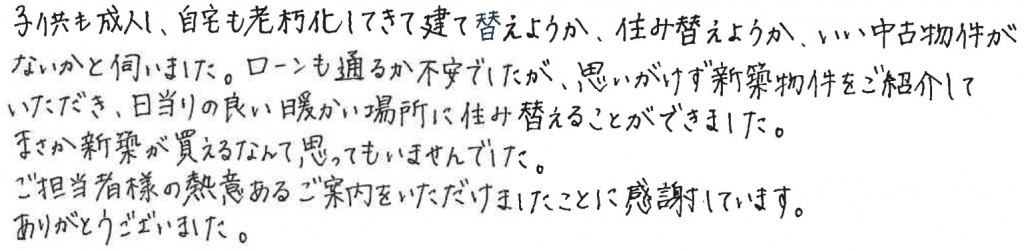 子供も成人し、自宅も老朽化してきて建て替えようか、住み替えようか、いい中古物件が
ないかと伺いました。ローンも通るか不安でしたが、思いがけず新築物件をご紹介して
いただき、日当りの良い暖かい場所に住み替えることができました。
まさか新築が買えるなんて思ってもいませんでした。
ご担当者様の熱意あるご案内をいただけましたことに感謝しています。
ありがとうございました。